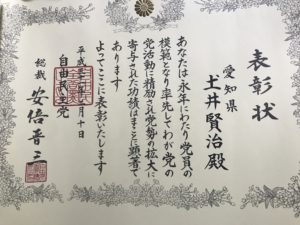 表彰状
愛知県
土井賢治殿
あなたは永年にわたり党員の
模範となり率先してわが党の
党活動に精励され党勢の拡大に
寄与された功績はまことに顕著で
あります
よってここに表彰いたします
平成 年 月十日
自由民主党
総裁 安倍晋三